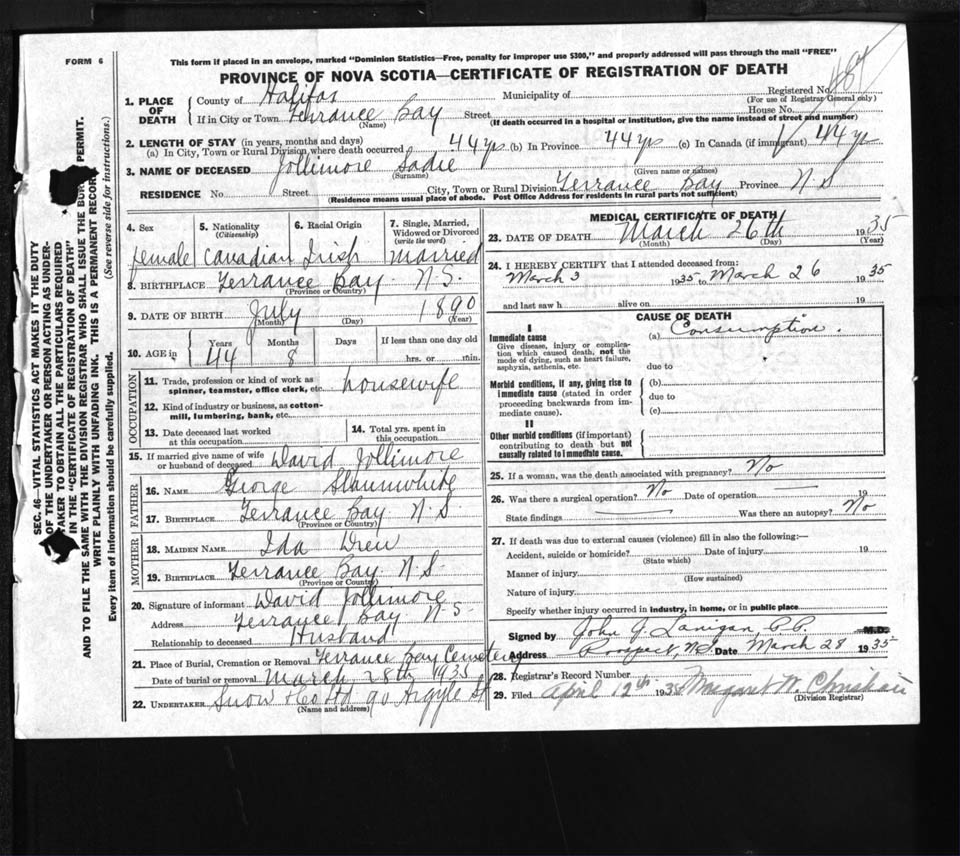 FORM 6
This form if placed in an envelope, marked "Dominion Statistics—Free, penalty for improper use $300," and properly addressed will pass through the mail "FREE"
PROVINCE OF NOVA SCOTIA—CERTIFICATE OF REGISTRATION OF DEATH
SEC. 46—VITAL STATISTICS ACT MAKES IT THE DUTY
OF THE UNDERTAKER OR PERSON ACTING AS UNDER-
TAKER TO OBTAIN ALL THE PARTICULARS REQUIRED
IN THE "CERTIFICATE OF REGISTRATION OF DEATH"
AND TO FILE THE SAME WITH THE DIVISION REGISTRAR WHO SHALL ISSUE THE PERMIT.
WRITE PLAINLY WITH UNFADING INK. THIS IS A PERMANENT RECORD
Every item of information should be carefully supplied. (See reverse side for instructions.)
1. PLACE OF DEATH
County of Halifax Municipality of Registered No.
(For use of Registrar General only)
If in City or Town Terrance Bay Street House No.
(Name) (If death occurred in a hospital or institution, give the name instead of street and number)
2. LENGTH OF STAY (in years, months and days)
(a) In City, Town or Rural Division where death occurred 44 yrs (b) In Province 44 yrs (c) In Canada (if immigrant) 44 yr
3. NAME OF DECEASED Jollimore Sadie
(Surname) (Given name or names)
RESIDENCE No. Street City, Town or Rural Division Terrance Bay Province N S
(Residence means usual place of abode. Post Office Address for residents in rural parts not sufficient)
4. Sex 5. Nationality (Citizenship) 6. Racial Origin 7. Single, Married, Widowed or Divorced (write the word)
female Canadian Irish Married
8. BIRTHPLACE Terrance Bay N.S.
(Province or Country)
9. DATE OF BIRTH July 1890
(Month) (Day) (Year)
10. AGE in Years Months Days If less than one day old
44 8 hrs. or min.
OCCUPATION
11. Trade, profession or kind of work as spinner, teamster, office clerk, etc. housewife
12. Kind of industry or business, as cotton-mill, lumbering, bank, etc.
13. Date deceased last worked at this occupation 14. Total yrs. spent in this occupation
15. If married give name of wife or husband of deceased David Jollimore
FATHER
16. NAME George Slaunwhite
17. BIRTHPLACE Terrance Bay N.S.
(Province or Country)
MOTHER
18. MAIDEN NAME Ida Drew
19. BIRTHPLACE Terrance Bay N S
(Province or Country)
20. Signature of informant David Jollimore
Address Terrance Bay N S
Relationship to deceased Husband
21. Place of Burial, Cremation or Removal Terrance Bay Cemetery
Date of burial or removal March 28th 1935
22. UNDERTAKER Snow & Co Ltd 90 Argyle St
(Name and address)
MEDICAL CERTIFICATE OF DEATH
23. DATE OF DEATH March 26th 1935
(Month) (Day) (Year)
24. I HEREBY CERTIFY that I attended deceased from:
March 3 1935 to March 26 1935
and last saw h alive on 19
CAUSE OF DEATH
I
Immediate cause (a) Consumption.
Give disease, injury or complication which caused death, not the mode of dying, such as heart failure, asphyxia, asthenia, etc.
due to
Morbid conditions, if any, giving rise to immediate cause (stated in order proceeding backwards from immediate cause).
(b)
due to
(c)
II
Other morbid conditions (if important) contributing to death but not causally related to immediate cause.
25. If a woman, was the death associated with pregnancy? No
26. Was there a surgical operation? No Date of operation 19
State findings Was there an autopsy? No
27. If death was due to external causes (violence) fill in also the following:—
Accident, suicide or homicide? Date of injury 19
(State which)
Manner of injury
(How sustained)
Nature of injury
Specify whether injury occurred in industry, in home, or in public place
Signed by John J. Lanigan, P.P. M.D.
Address Prospect, N.S. Date March 28 1935
28. Registrar's Record Number
29. Filed April 12th 1935 Margaret W. Christian
(Division Registrar)